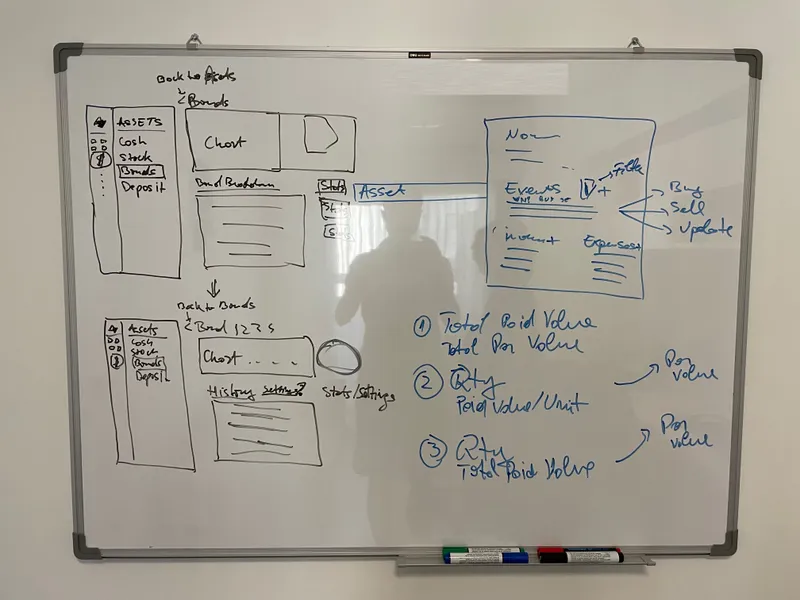 Back to Assets
< Bonds
ASSETS
Cash
Stock
Bonds
Deposit
$
Chart
Bond Breakdown
Stats
Stats
Back to Bonds
< Bond 1234
Assets
Cash
Stock
Bonds
Deposit
$
Chart ....
History Settings?
Stats/Settings
Asset
Events +
Filter
Buy
Sell
Update
Expenses+
① Total Paid Volume
Total Par Volume
② Qty
Paid Value/Unit
Par Value
③ Qty
Total Paid Volume
Par Value